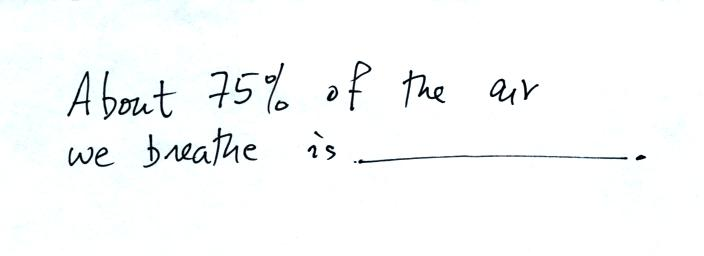 About 75% of the air
we breathe is ____________.